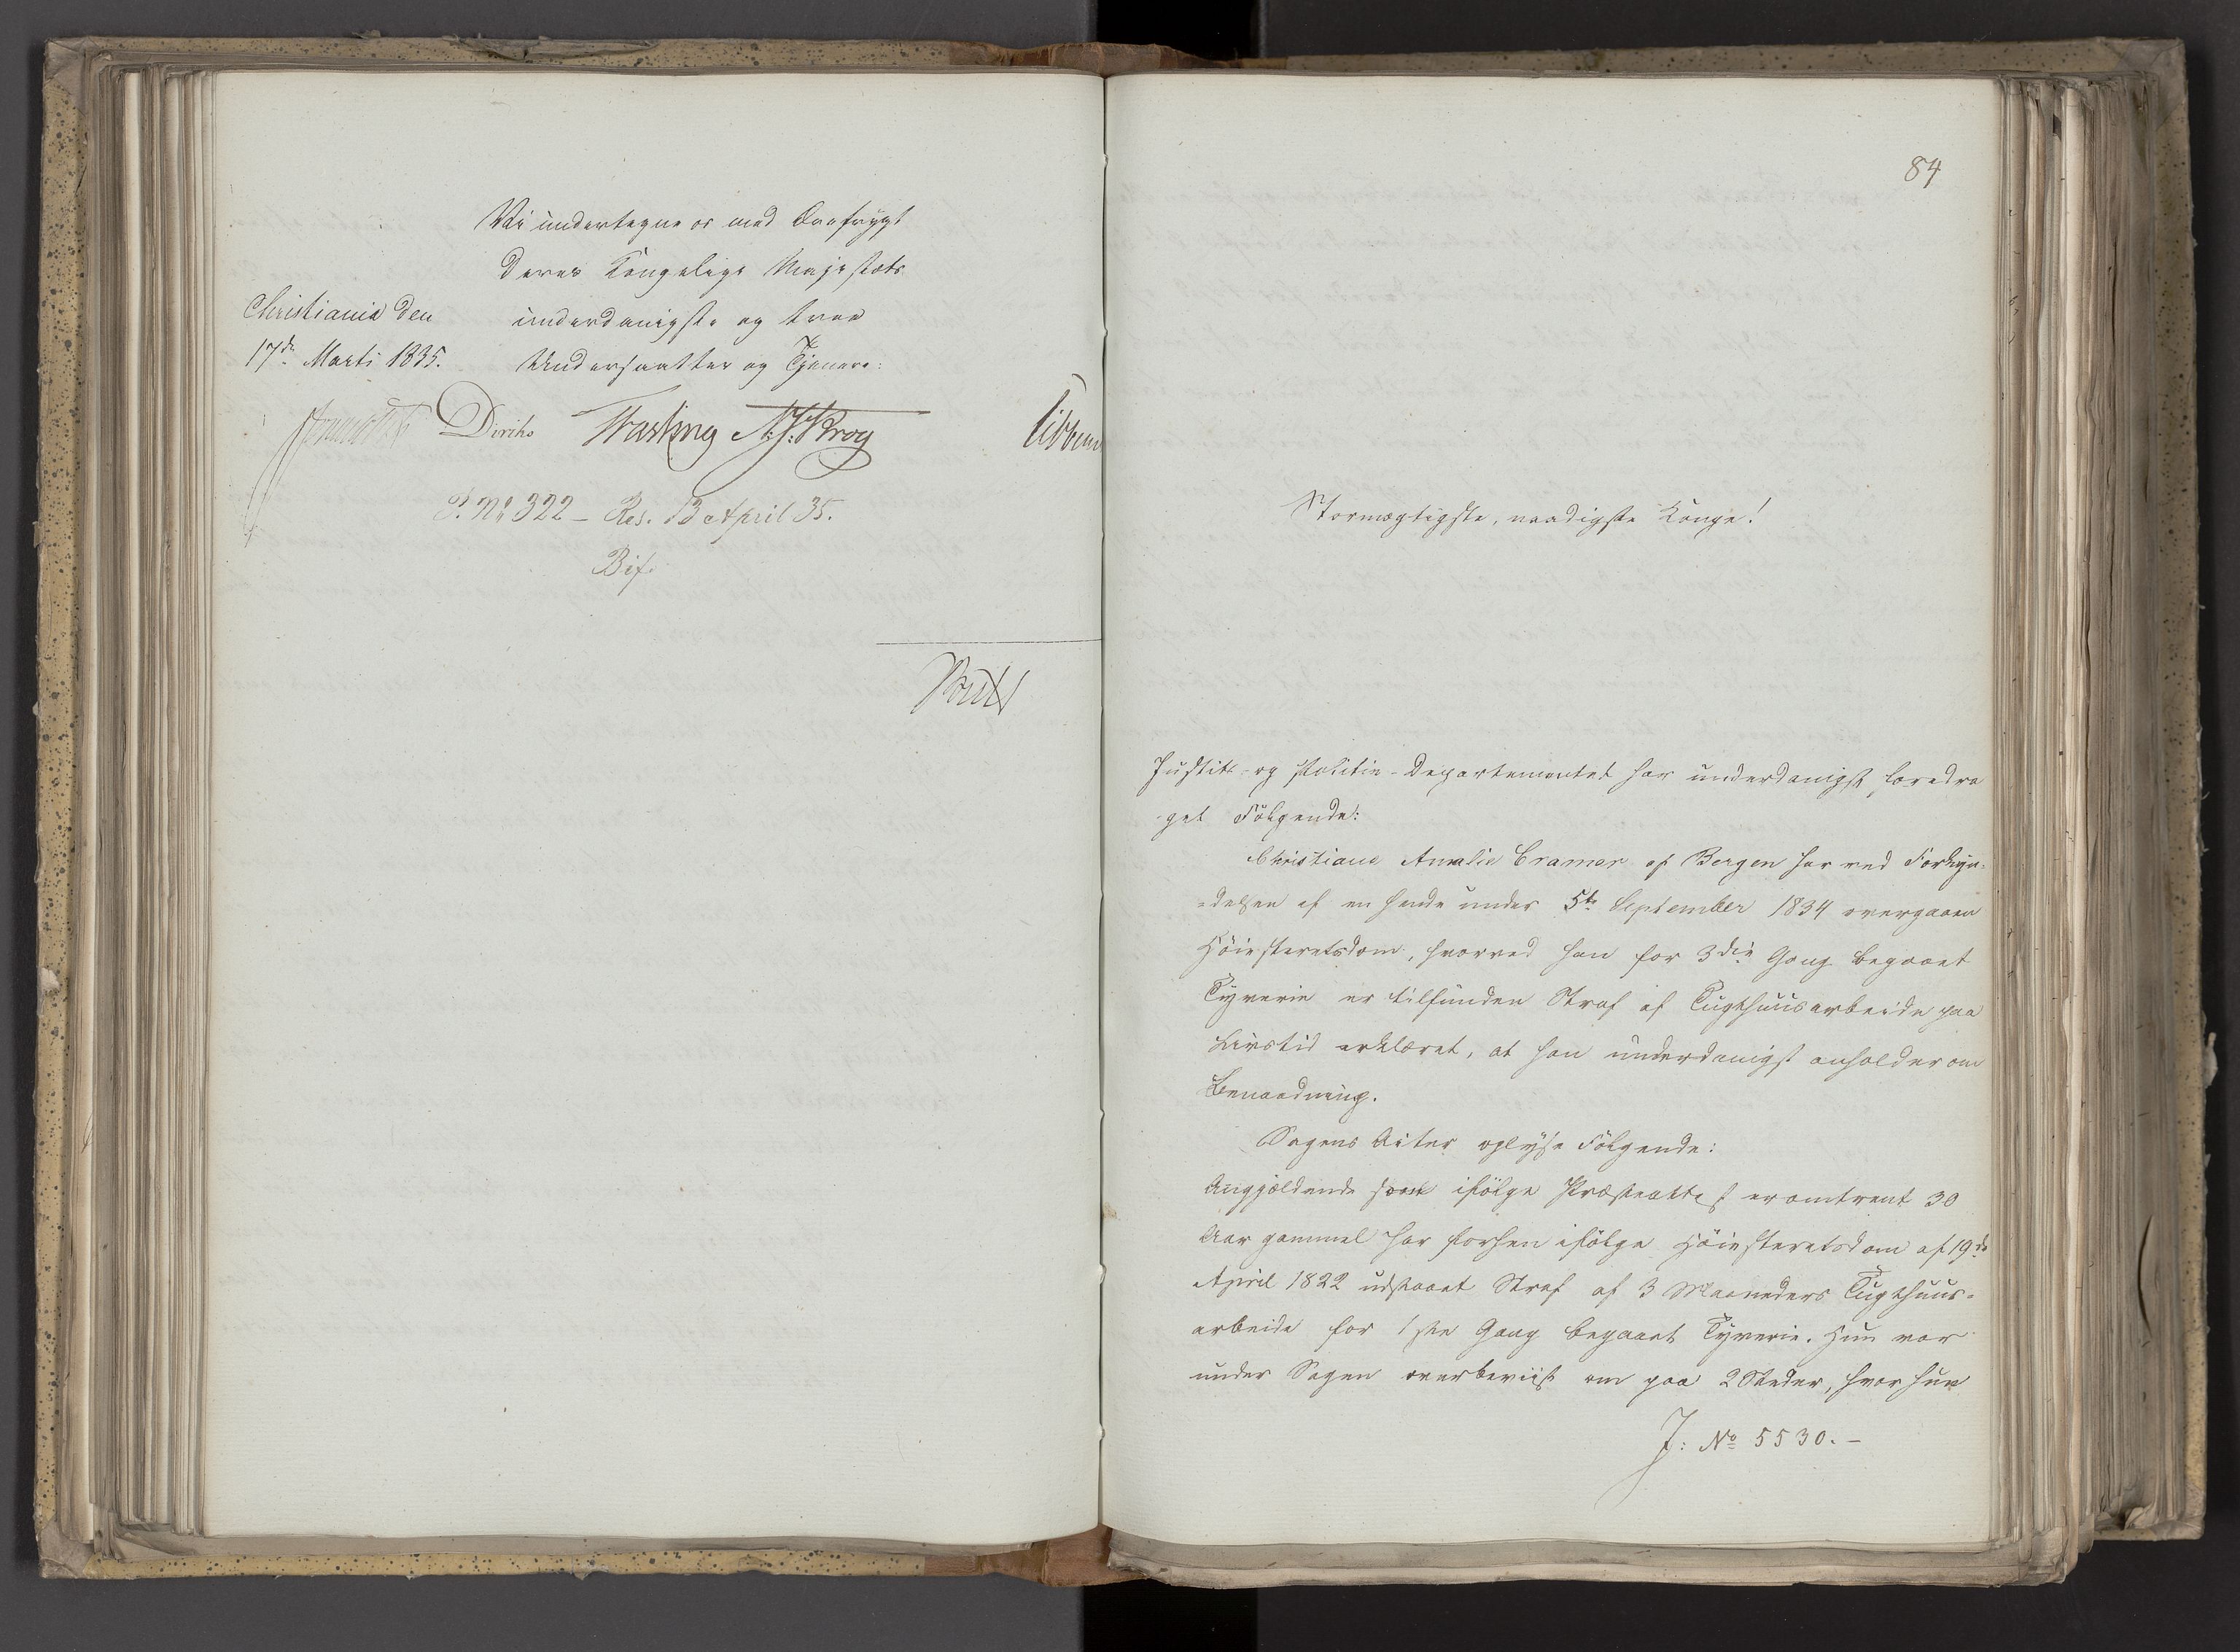 Vi undertegne os med Ærefrygt
Deres Kongelige Majestæts
Christiania den
underdanigste og troe
17de Marti 1835.
Undersaatter og Tjenere:
Diriks Fasting N. J. Krog
P. No 322 – Res. 13 April 35.
Bif.
84
Stormægtigste, naadigste Konge!
Justits- og Politie-Departementet har underdanigst foredra
-get Følgende:
Christiane Amalie Cramer af Bergen har ved Forkyn-
=delsen af en hende under 5te September 1834 overgaaen
Höiesteretsdom, hvorved hun for 3die Gang begaaet
Tyverie er tilfunden Straf af Tugthuusarbeide paa
Livstid erklæret, at hun underdanigst anholder om
Benaadning.
Sagens Acter oplyse Følgende:
Angjældende som ifölge Præsteattest er omtrent 30
Aar gammel har forhen ifölge Höiesteretsdom af 19de
April 1822 udstaaet Straf af 3 Maaneders Tugthuus-
arbeide for 1ste Gang begaaet Tyverie. Hun var
under Sagen overbeviist om paa 2 Steder, hvor hun
J: No 5530.-